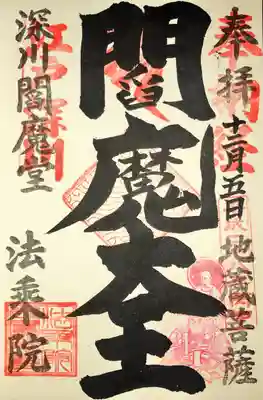 奉拝
十二月五日
地蔵菩薩
閻魔大王
深川閻魔堂
法乗院